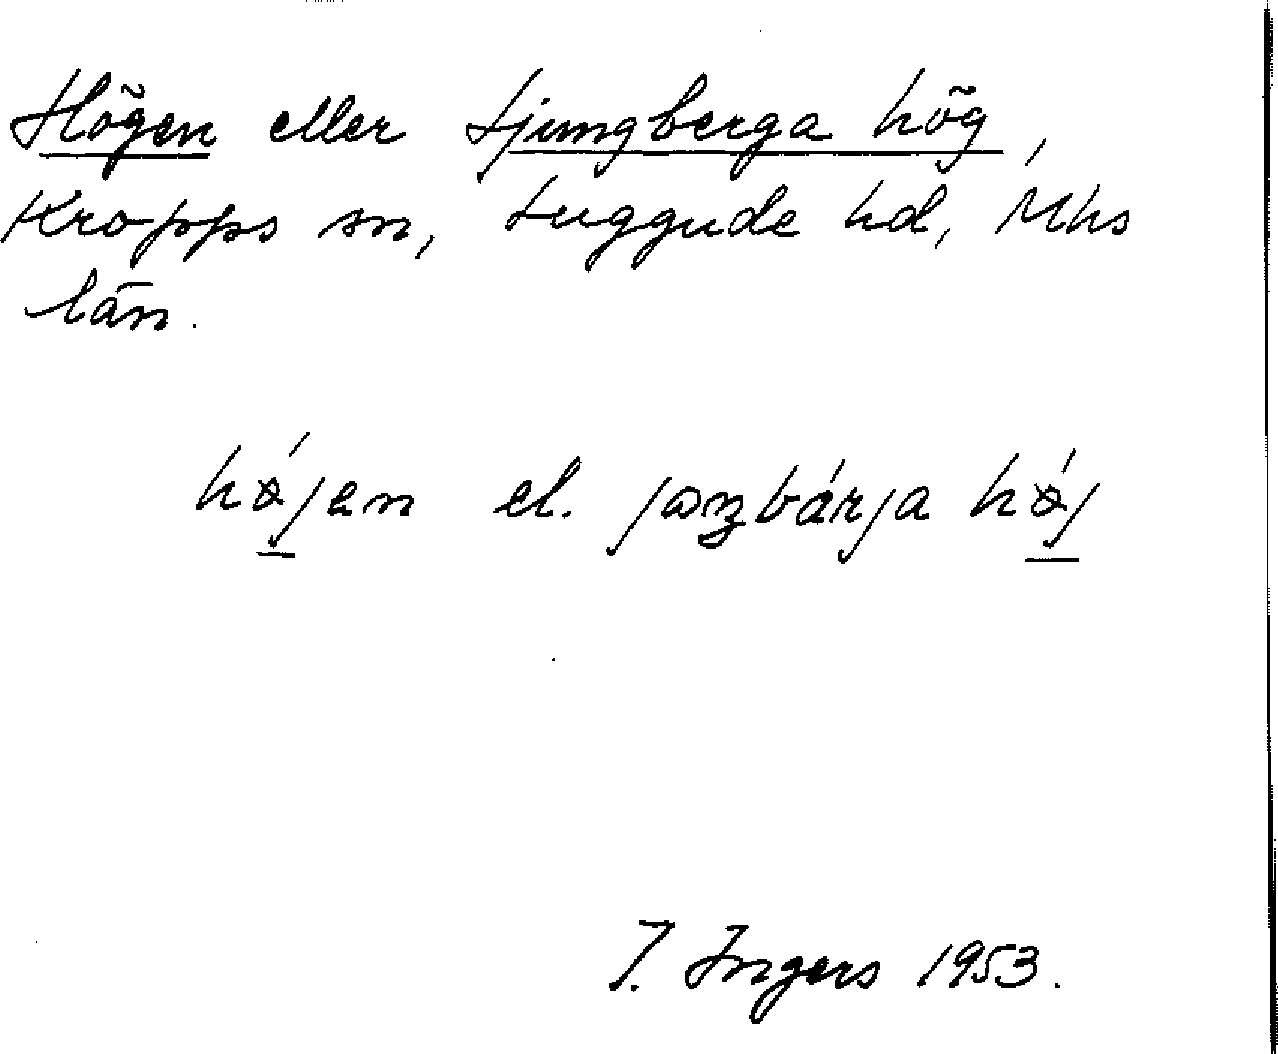 Högen eller Ljungberga hög,
Kropps sn, Luggude hd, Mhs
län.
hǿjen el. jaŋbárja hǿj
I. Ingers 1953.